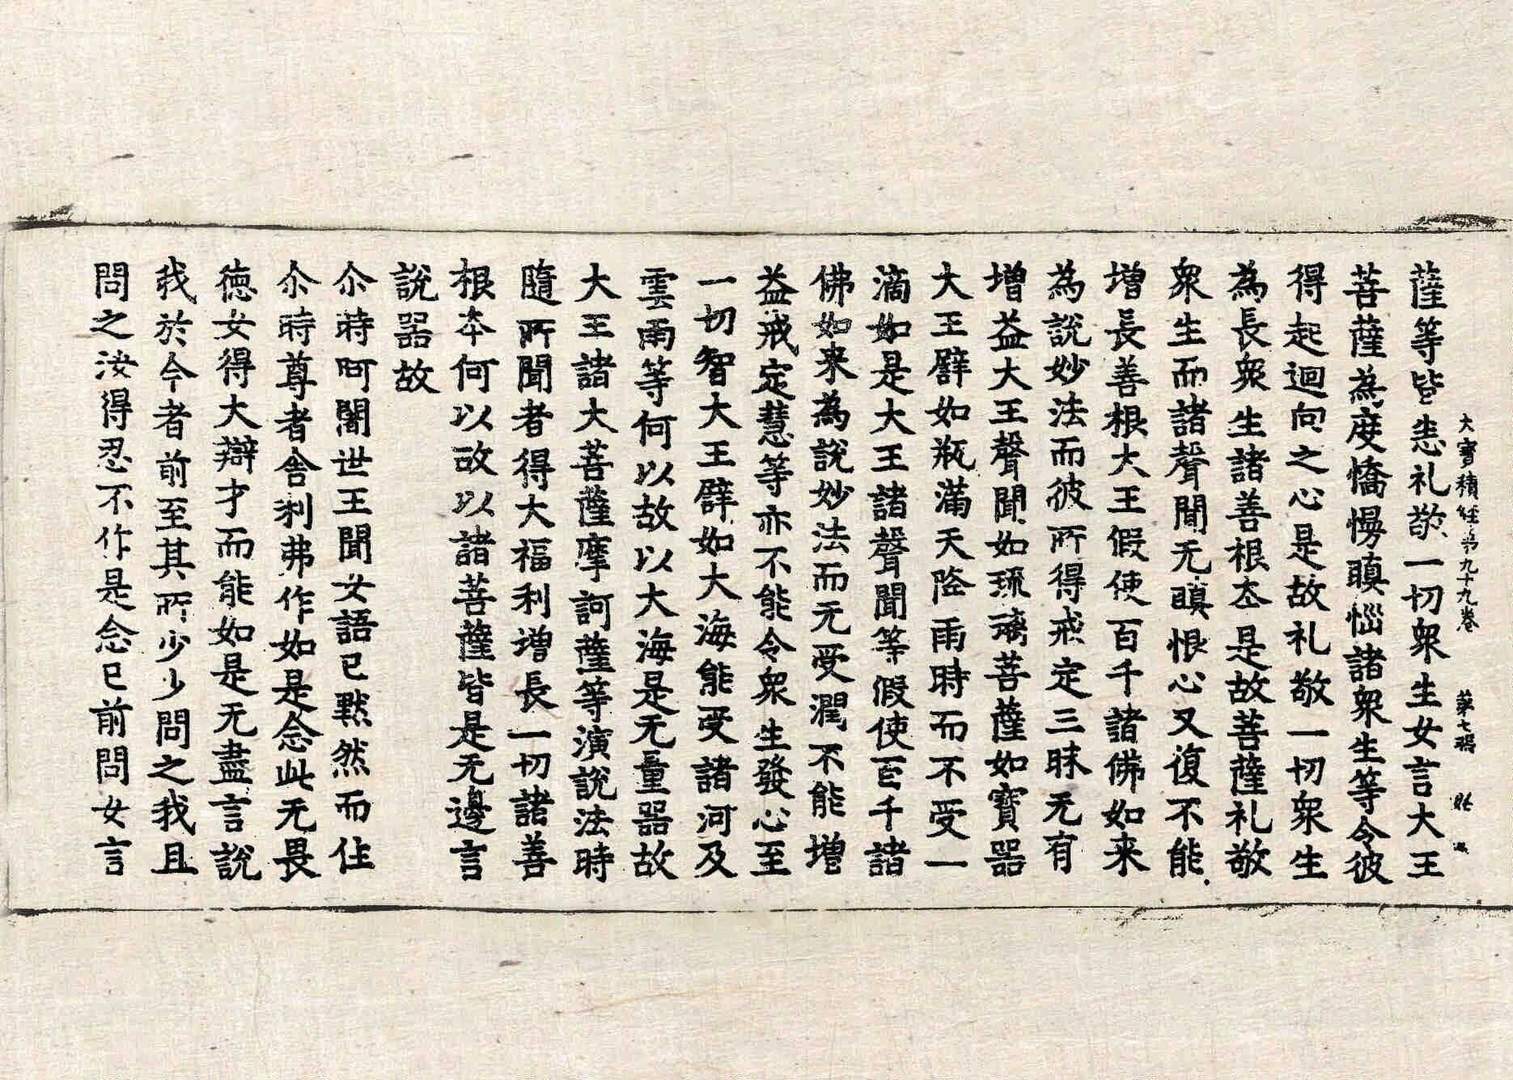 大寶積經第九十九卷 第七張
薩等皆悉礼敬一切衆生女言大王
菩薩為度憍慢瞋惱諸衆生等令彼
得起迴向之心是故礼敬一切衆生
為長衆生諸善根本是故菩薩礼敬
衆生而諸聲聞无瞋恨心又復不能
增長善根大王假使百千諸佛如来
為說妙法而彼所得戒定三昧无有
增益大王聲聞如琉璃菩薩如寶器
大王譬如瓶滿天降雨時而不受一
滴如是大王諸聲聞等假使百千諸
佛如来為說妙法而无受潤不能增
益戒定慧等亦不能令衆生發心至
一切智大王譬如大海能受諸河及
雲雨等何以故以大海是无量器故
大王諸大菩薩摩訶薩等演說法時
隨所聞者得大福利增長一切諸善
根本何以故以諸菩薩皆是无邊言
說器故
尒時阿闍世王聞女語已默然而住
尒時尊者舍利弗作如是念此无畏
德女得大辯才而能如是无盡言說
我於今者前至其所少少問之我且
問之汝得忍不作是念已前問女言